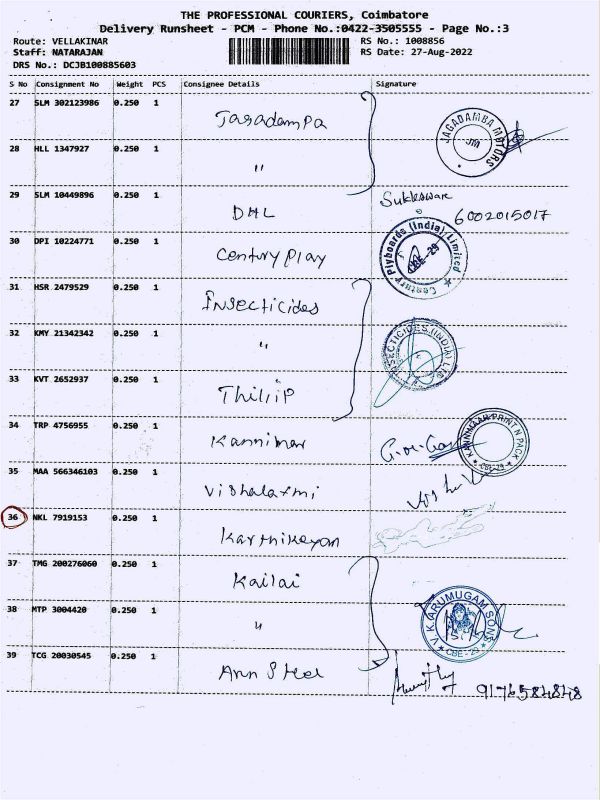 THE PROFESSIONAL COURIERS, Coimbatore
Delivery Runsheet - PCM - Phone No.:0422-3505555 - Page No.:3
Route: VELLAKINAR
RS No.: 1008856
Staff: NATARAJAN
RS Date: 27-Aug-2022
DRS No.: DCJB100885603
S No Consignment No Weight PCS Consignee Details Signature
27 SLM 302123986 0.250 1 Jagadampa
JAGADAMBA MOTORS
JM
28 HLL 1347927 0.250 1 "
29 SLM 10449896 0.250 1 DHL
Sukleswar
6002015017
30 DPI 10224771 0.250 1 Century Play
Century Plyboards (India) Limited
CBE-29
31 HSR 2479529 0.250 1 Insecticides
32 KMY 21342342 0.250 1 "
INSECTICIDES (INDIA) LTD
33 KVT 2652937 0.250 1 Thiliip
34 TRP 4756955 0.250 1 Kannimar
KANNIMAAR PRINT N PACK
CBE-29
35 MAA 566346103 0.250 1 Vishalaxmi
36 NKL 7919153 0.250 1 Karthikeyan
37 TMG 200276060 0.250 1 Kailai
38 MTP 3004420 0.250 1 "
V.K. ARUMUGAM SONS
CBE-29
39 TCG 20030545 0.250 1 Ann Steel
9176584848